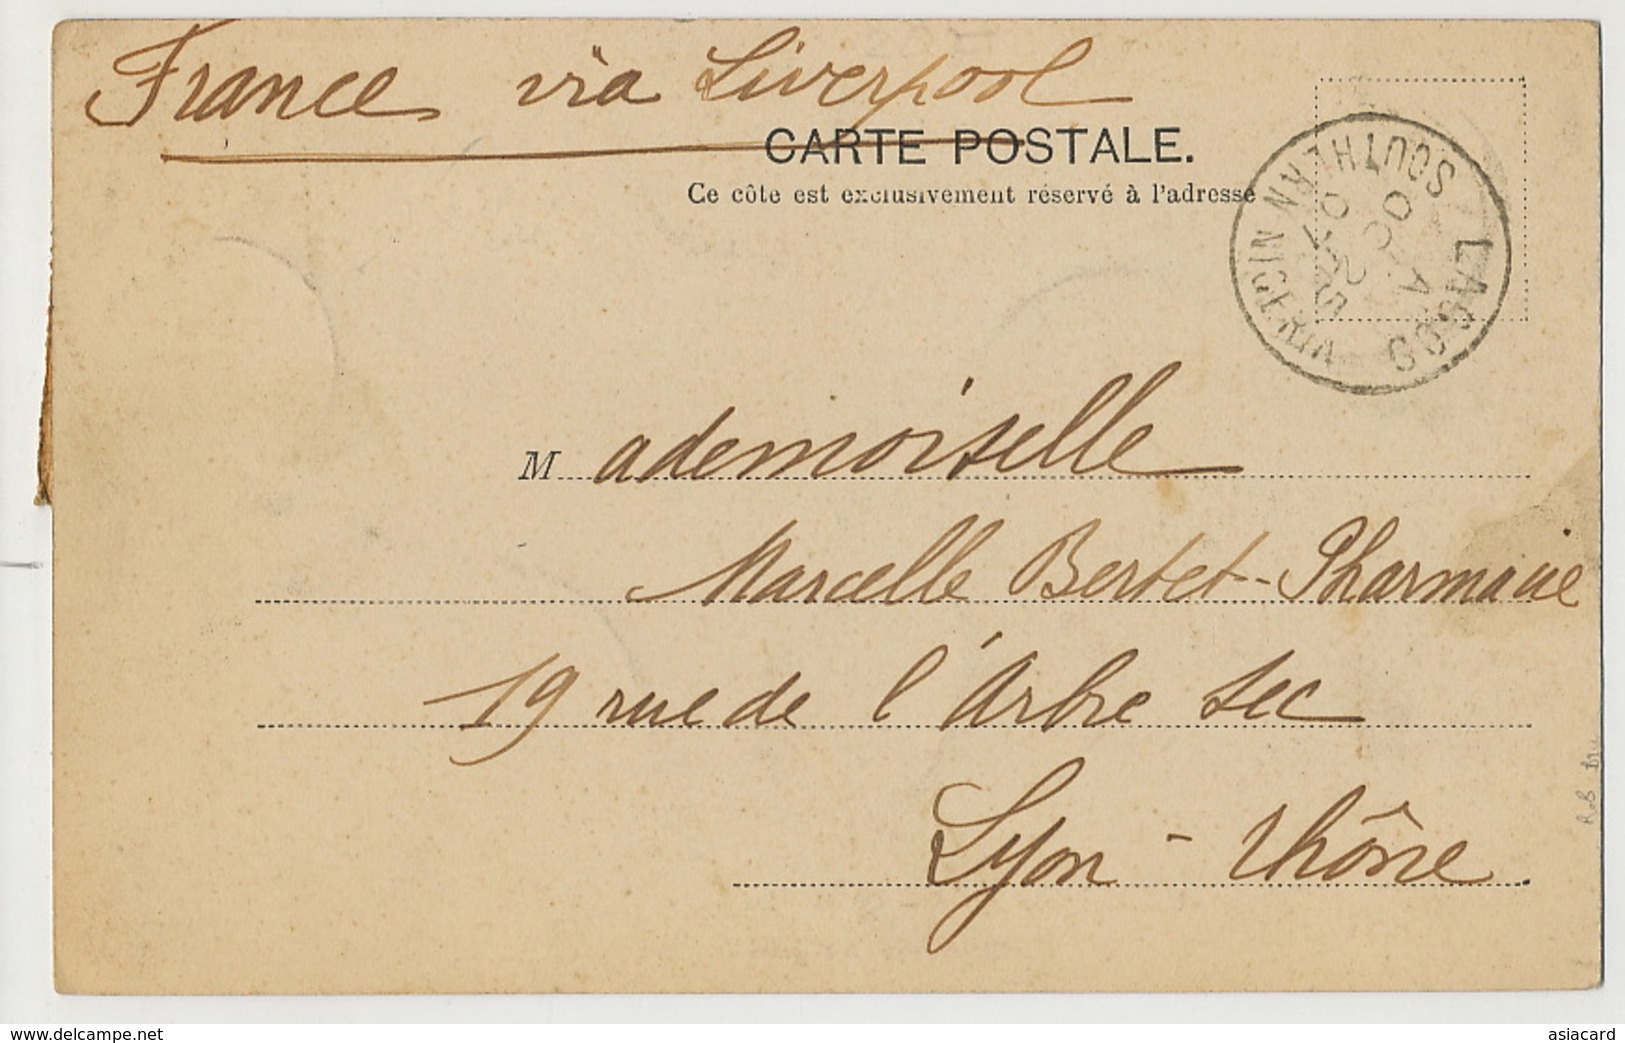 France via Liverpool
CARTE POSTALE.
Ce côte est exclusivement réservé à l'adresse
LAGOS
SOUTHERN NIGERIA
A
OC
Mademoiselle
Marcelle Bertet - Pharmacie
19 rue de l'Arbre sec
Lyon - Rhône
delcampe.net
asiacard